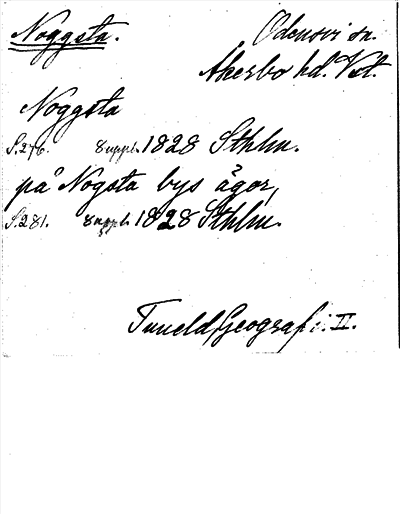 Noggsta.
Odensvi sn.
Åkerbo hd. Vst.
Noggsta
S.276. 8 uppl. 1828 Sthlm.
på Nogsta bys ägor,
S.281. 8 uppl. 1828 Sthlm.
Tuneld, Geografi. II.